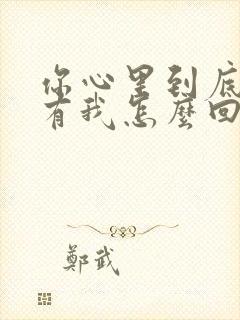 你心里到底
有我怎麼回
鄭武